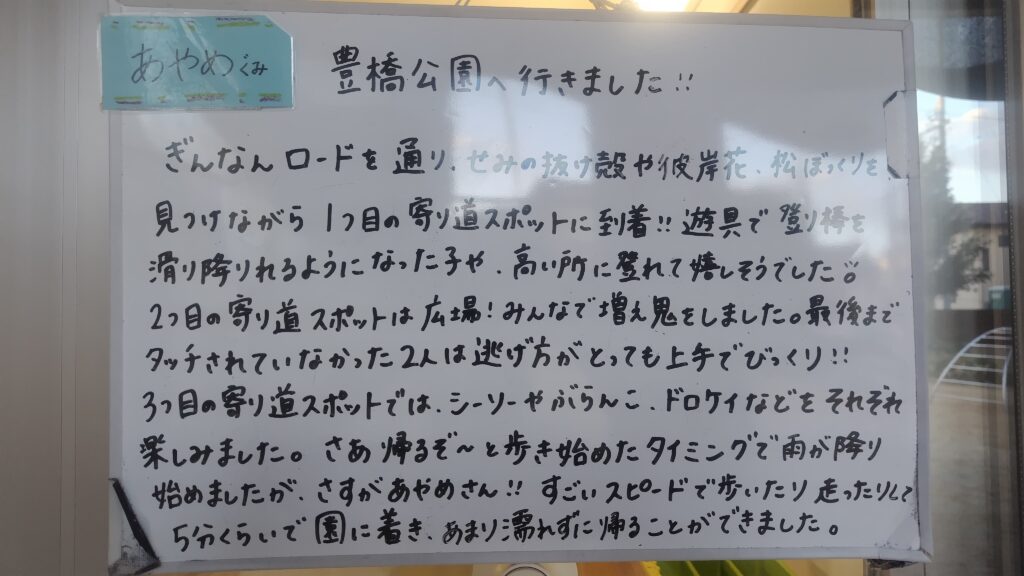 あやめぐみ
豊橋公園へ行きました!!
ぎんなんロードを通り、せみの抜け殻や彼岸花、松ぼっくりを
見つけながら 1つ目の寄り道スポットに到着!! 遊具で登り棒を
滑り降りれるようになった子や、高い所に登れて嬉しそうでした
2つ目の寄り道スポットは広場!みんなで増え鬼をしました。最後まで
タッチされていなかった2人は逃げ方がとっても上手でびっくり!!
3つ目の寄り道スポットでは、シーソーやぶらんこ、ドロケイなどをそれぞれ
楽しみました。さあ帰るぞ〜と歩き始めたタイミングで雨が降り
始めましたが、さすがあやめさん!! すごいスピードで歩いたり走ったりして
5分くらいで園に着き、あまり濡れずに帰ることができました。